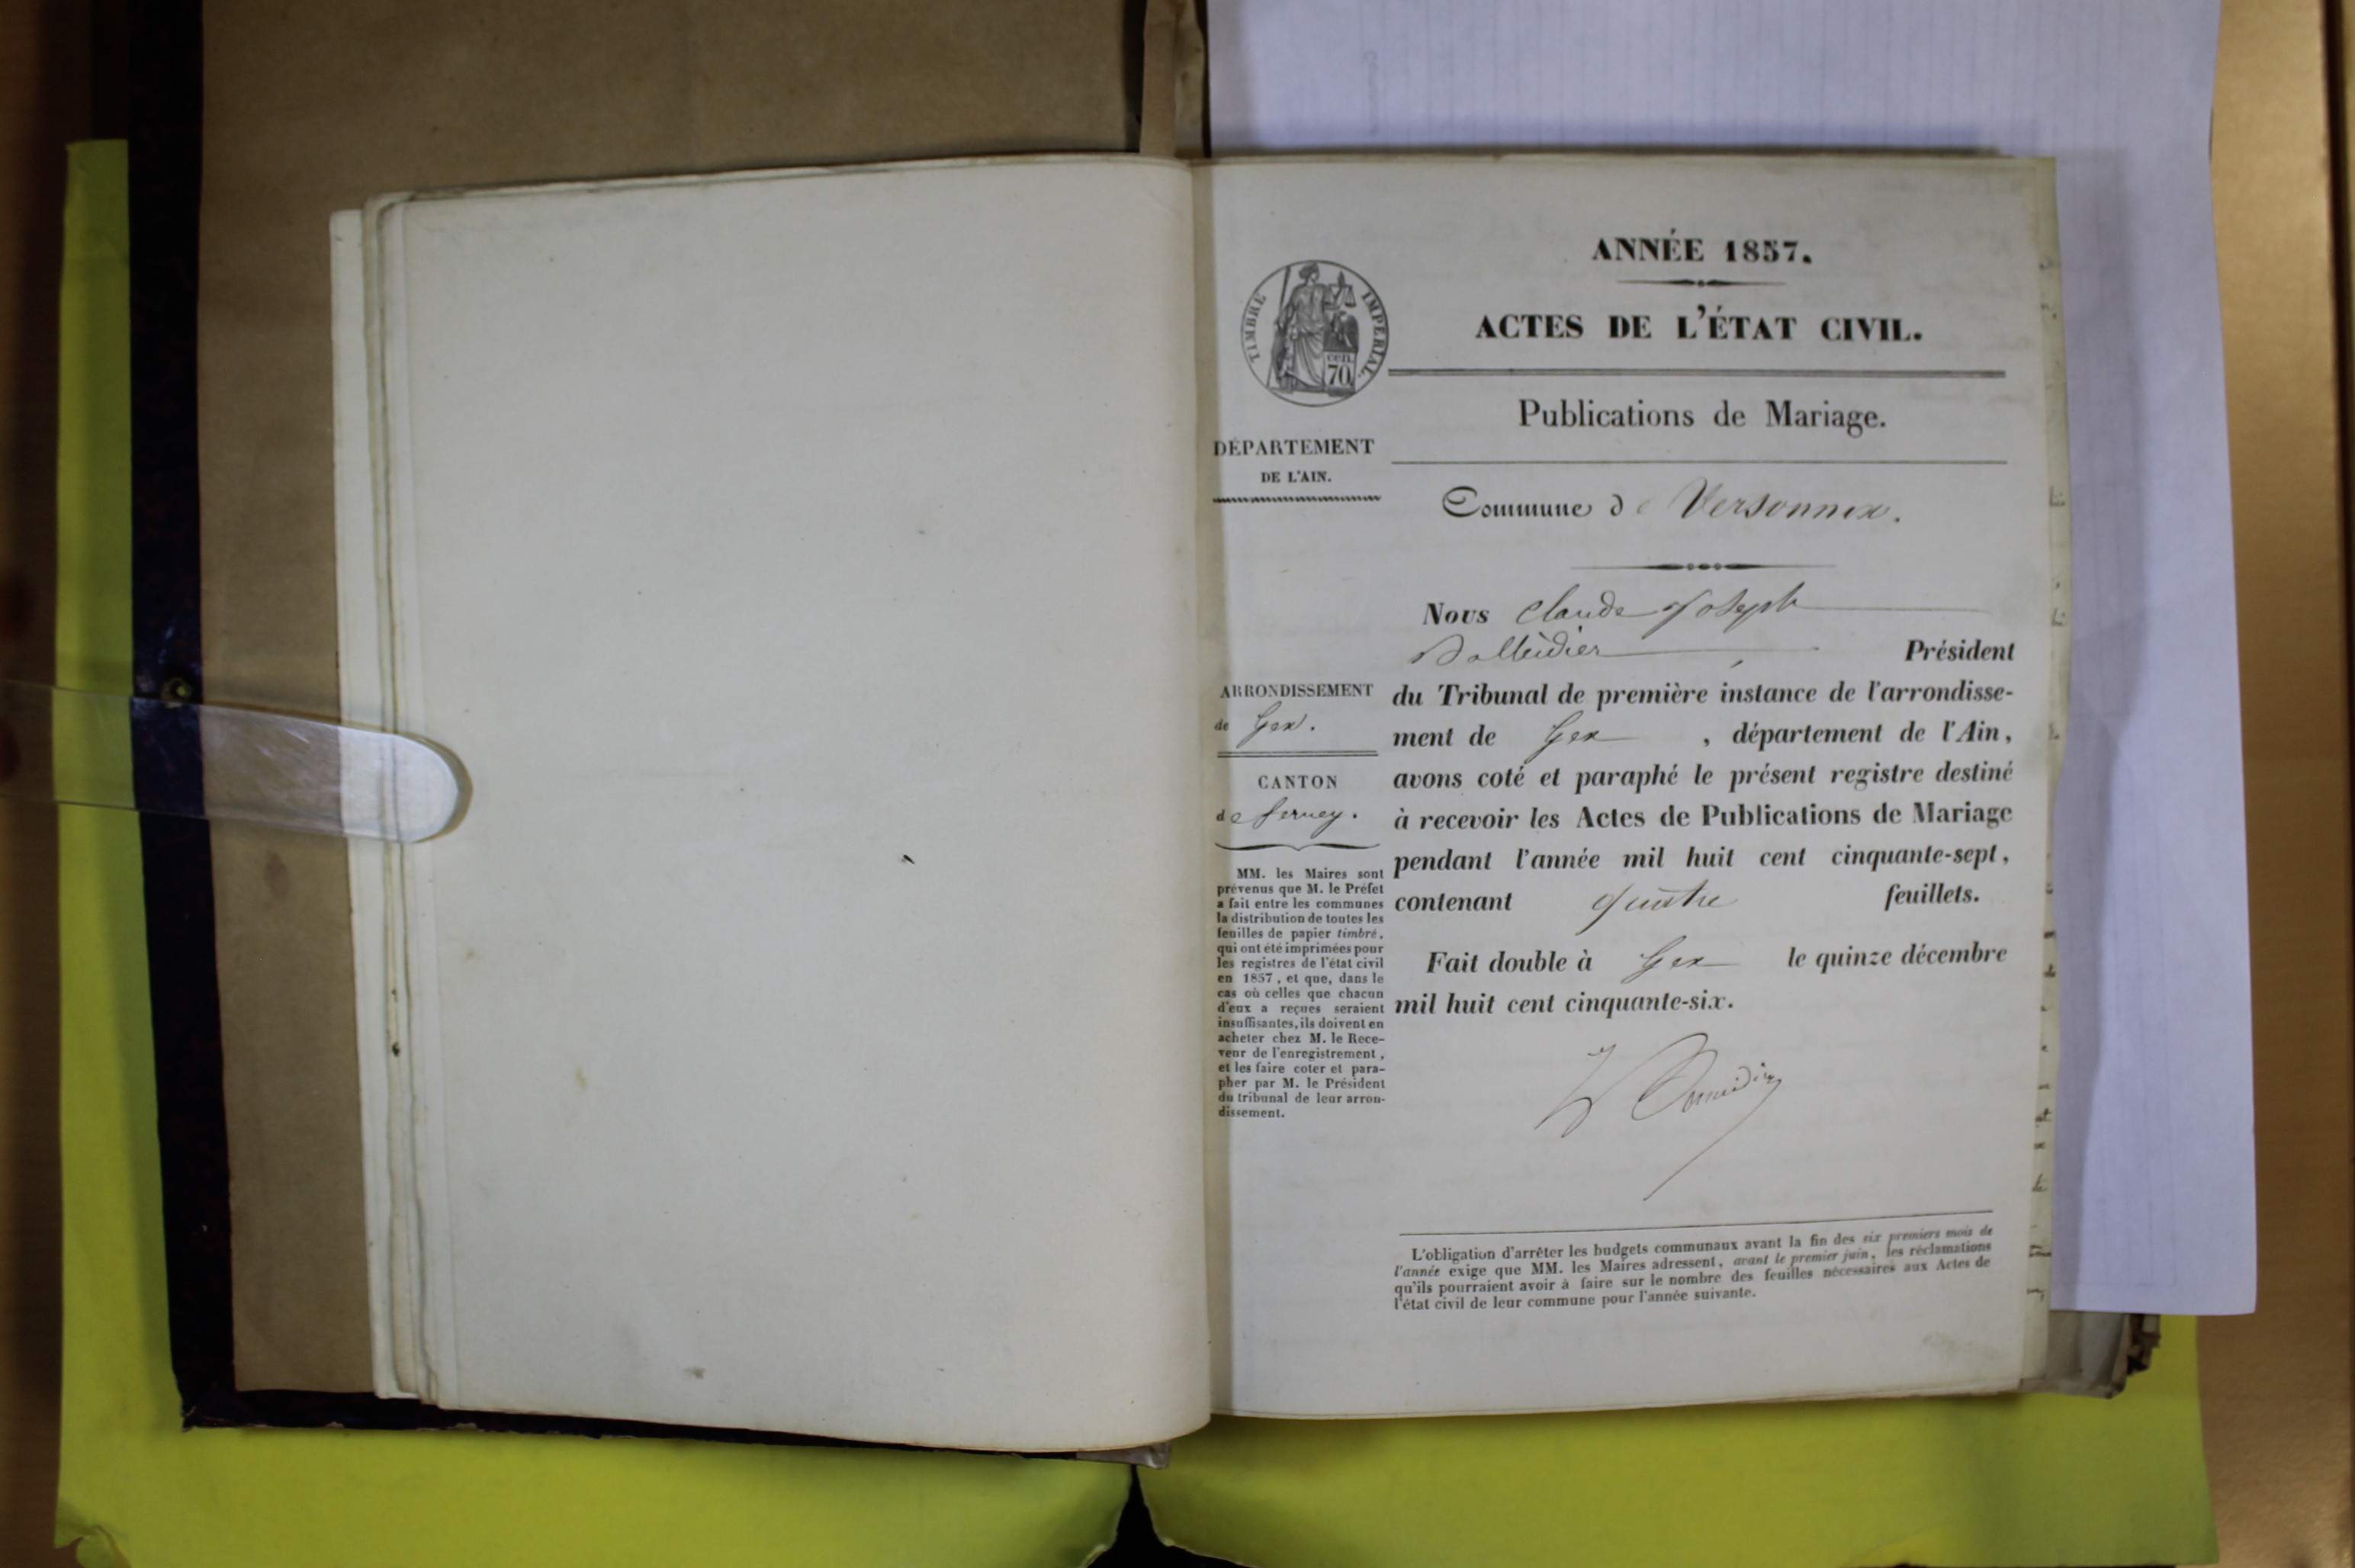 ANNÉE 1857.
ACTES DE L'ÉTAT CIVIL.
Publications de Mariage.
Commune de Versonnex.
TIMBRE IMPERIAL
cen.
70
DÉPARTEMENT
DE L'AIN.
ARRONDISSEMENT
de Gex.
CANTON
de ferney.
MM. les Maires sont
prévenus que M. le Préfet
a fait entre les communes
la distribution de toutes les
feuilles de papier timbré,
qui ont été imprimées pour
les registres de l'état civil
en 1857, et que, dans le
cas où celles que chacun
d'eux a reçues seraient
insuffisantes, ils doivent en
acheter chez M. le Rece-
veur de l'enregistrement,
et les faire coter et para-
pher par M. le Président
du tribunal de leur arron-
dissement.
Nous Claude Joseph
Président
du Tribunal de première instance de l'arrondisse-
ment de Gex, département de l'Ain,
avons coté et paraphé le présent registre destiné
à recevoir les Actes de Publications de Mariage
pendant l'année mil huit cent cinquante-sept,
contenant quatre feuillets.
Fait double à Gex le quinze décembre
mil huit cent cinquante-six.
L'obligation d'arrêter les budgets communaux avant la fin des six premiers mois de
l'année exige que MM. les Maires adressent, avant le premier juin, les réclamations
qu'ils pourraient avoir à faire sur le nombre des feuilles nécessaires aux Actes de
l'état civil de leur commune pour l'année suivante.